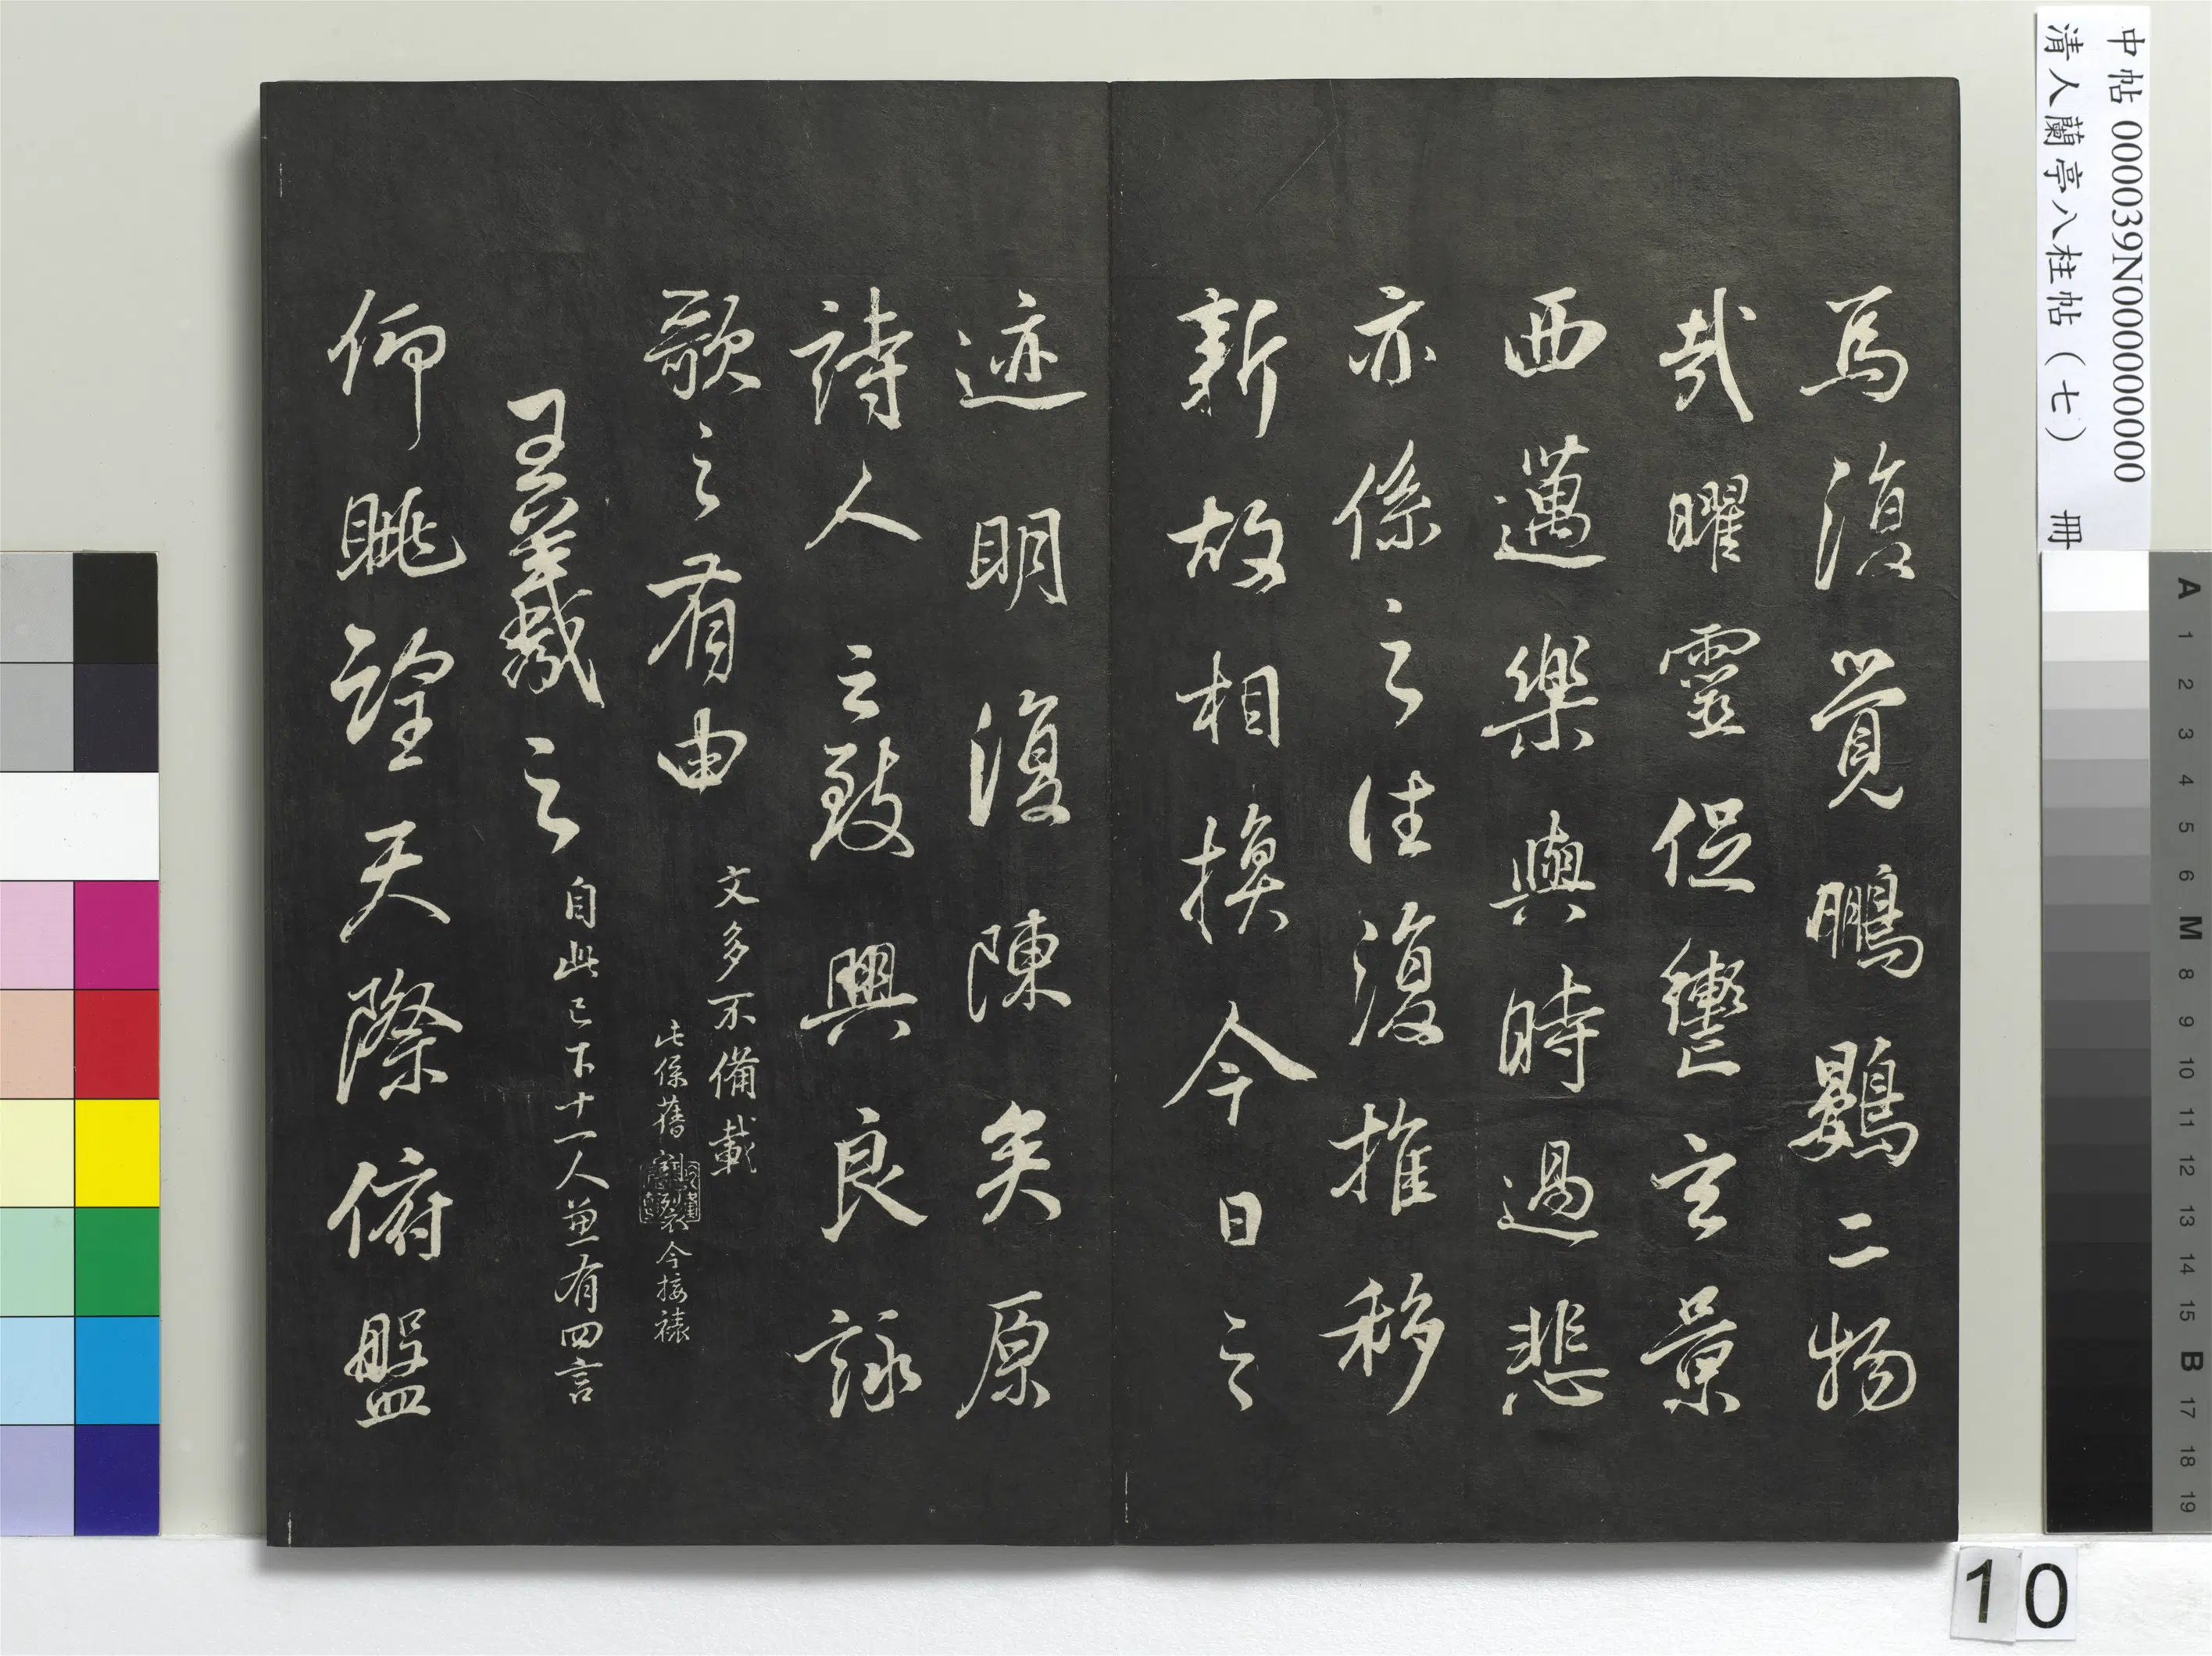 中帖 000039N000000000
清人蘭亭八柱帖（七） 冊
焉復覺鵬鷃二物
哉曜靈促轡玄景
西邁樂與時過悲
亦係之往復推移
新故相換今日之
迹明復陳矣原
詩人之致興良詠
歌之有由
文多不備載
此係舊割裂今接裱
王羲之
自此已下十一人並有四言
仰眺望天際俯盤
10
A 1 2 3 4 5 6 M 8 9 10 11 12 13 14 15 B 17 18 19